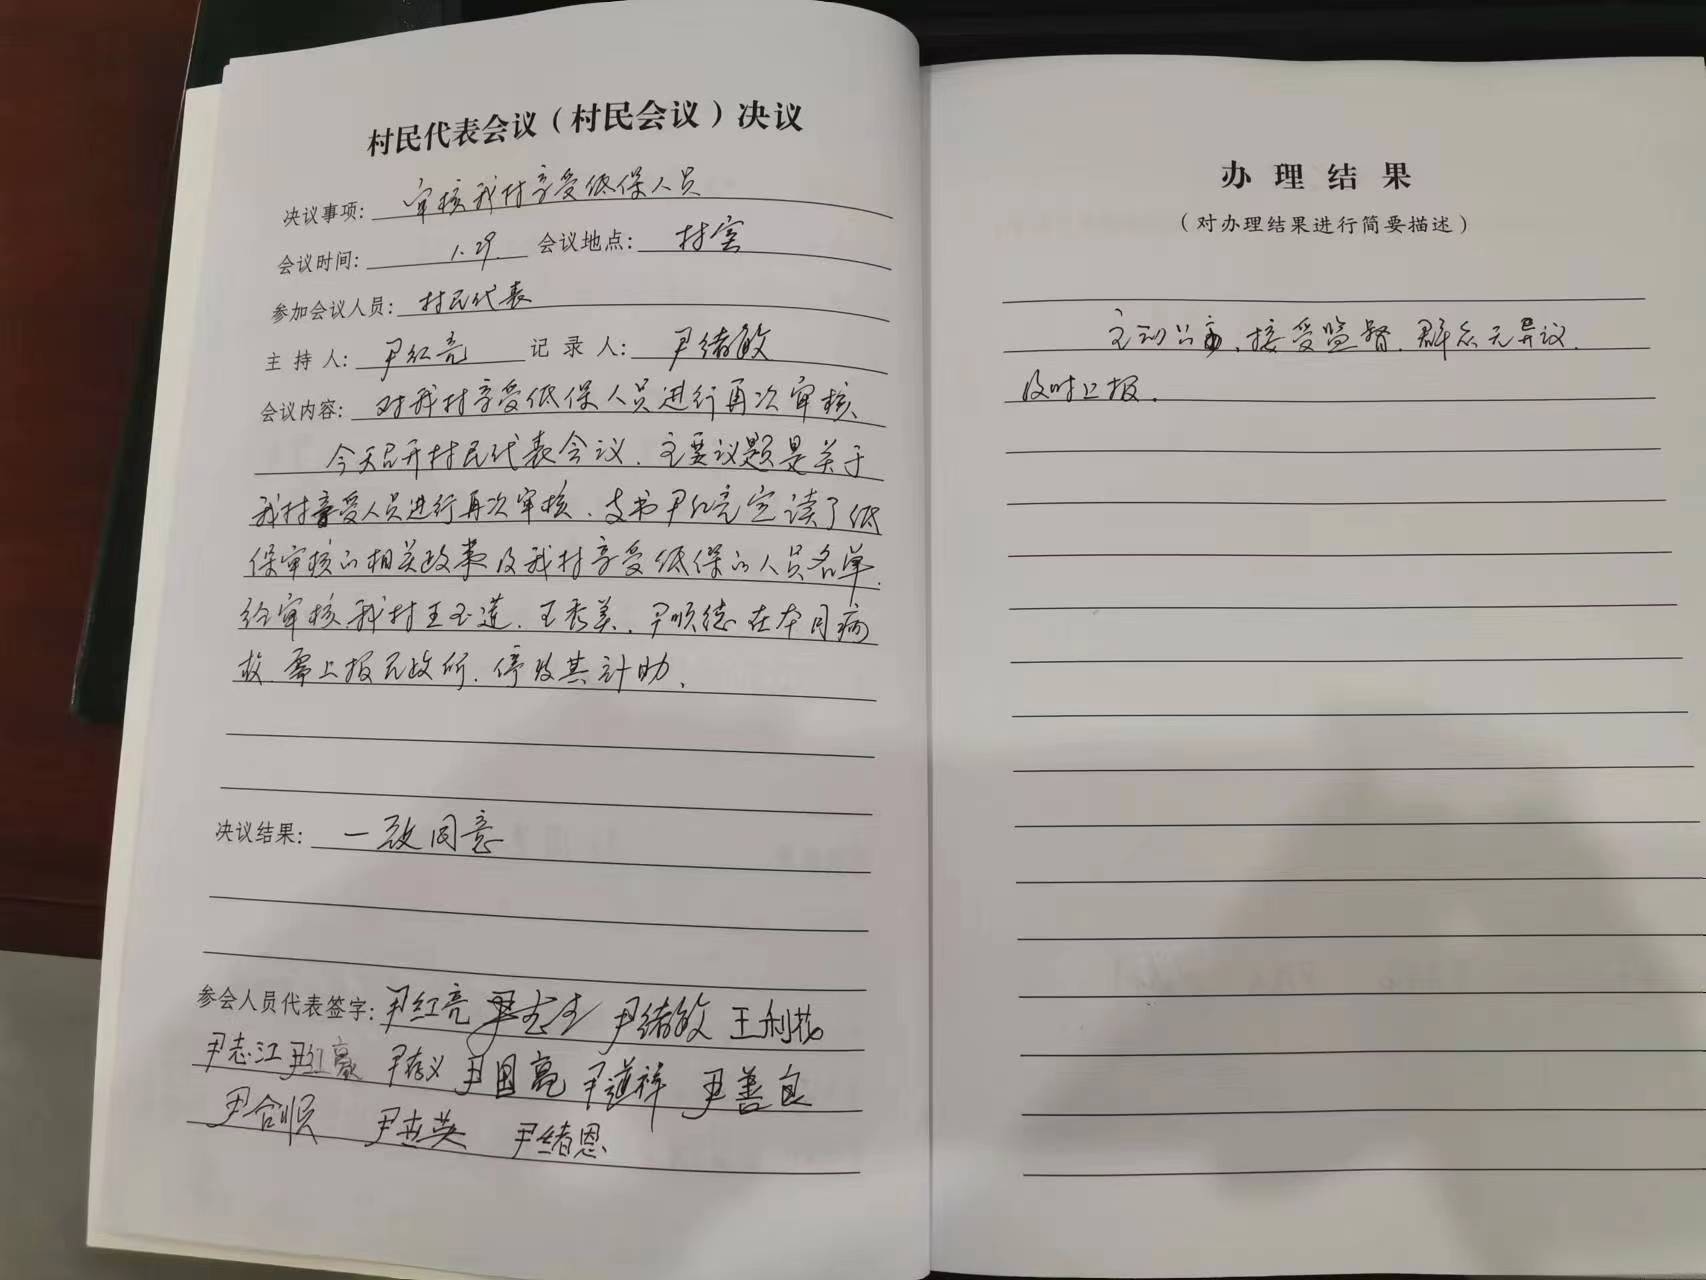 村民代表会议（村民会议）决议
决议事项：审核我村享受低保人员
会议时间：1.29. 会议地点：村室
参加会议人员：村民代表
主持人：尹红亮 记录人：尹绪敏
会议内容：对我村享受低保人员进行再次审核、
今天召开村民代表会议．主要议题是关于
我村享受人员进行再次审核．支书尹红亮宣读了低
保审核的相关政策及我村享受低保的人员名单．
经审核，我村王玉莲．王秀美．尹顺德在本月病
故．需上报民政所．停发其补助．
决议结果：一致同意
参会人员代表签字：尹红亮 尹绪敏
尹志江 尹红豪 尹孝义 尹国亮 尹道祥 尹善良
尹合顺 尹绪恩
办理结果
（对办理结果进行简要描述）
主动公布、接受监督．群众无异议．
及时上报．